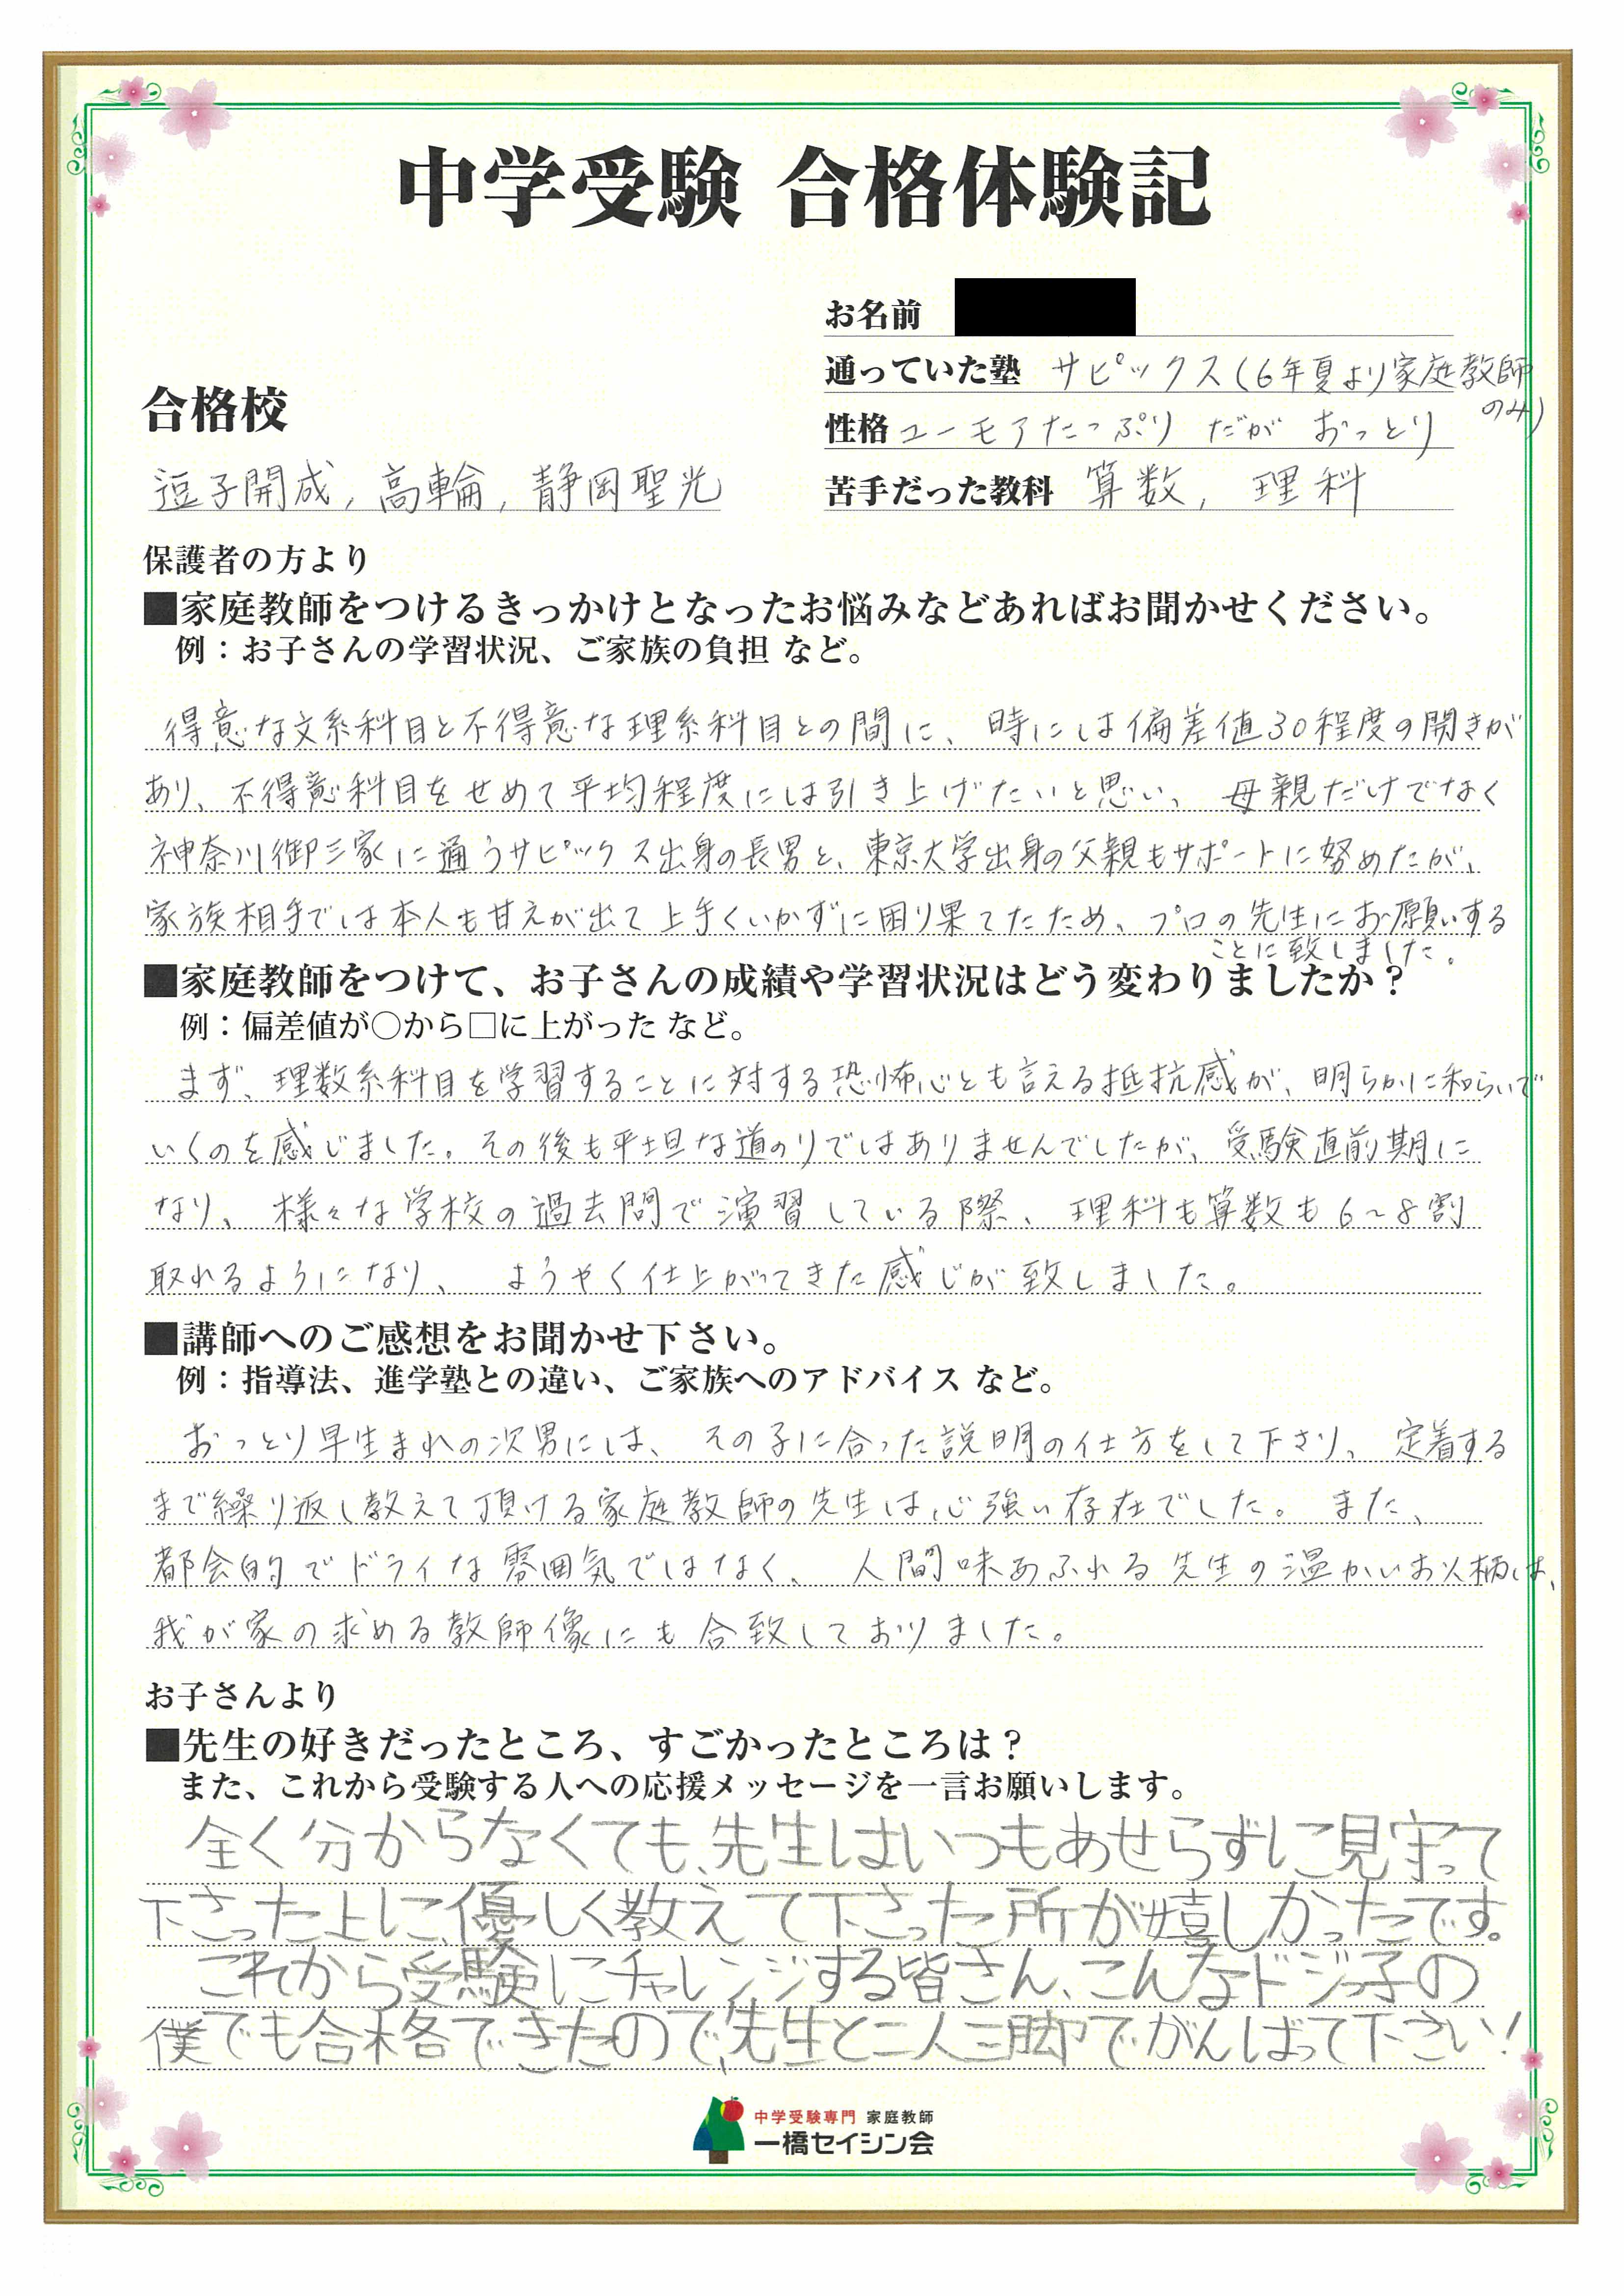 中学受験 合格体験記
お名前
通っていた塾 サピックス(6年夏より家庭教師
のみ)
合格校
性格 ユーモアたっぷり だが おっとり
逗子開成, 高輪, 静岡聖光
苦手だった教科 算数, 理科
保護者の方より
■家庭教師をつけるきっかけとなったお悩みなどあればお聞かせください。
例：お子さんの学習状況、ご家族の負担 など。
得意な文系科目と不得意な理系科目との間に、時には偏差値30程度の開きが
あり、不得意科目をせめて平均程度には引き上げたいと思い、母親だけでなく
神奈川御三家に通うサピックス出身の長男と、東京大学出身の父親もサポートに努めたが、
家族相手では本人も甘えが出て上手くいかずに困り果てたため、プロの先生にお願いする
ことに致しました。
■家庭教師をつけて、お子さんの成績や学習状況はどう変わりましたか？
例：偏差値が○から□に上がった など。
まず、理数系科目を学習することに対する恐怖心とも言える抵抗感が、明らかに和らいで
いくのを感じました。その後も平坦な道のりではありませんでしたが、受験直前期に
なり、様々な学校の過去問で演習している際、理科も算数も6～8割
取れるようになり、ようやく仕上がってきた感じが致しました。
■講師へのご感想をお聞かせ下さい。
例：指導法、進学塾との違い、ご家族へのアドバイス など。
おっとり早生まれの次男には、その子に合った説明の仕方をして下さり、定着する
まで繰り返し教えて頂ける家庭教師の先生は心強い存在でした。また、
都会的でドライな雰囲気ではなく、人間味あふれる先生の温かいお人柄は、
我が家の求める教師像にも合致しておりました。
お子さんより
■先生の好きだったところ、すごかったところは？
また、これから受験する人への応援メッセージを一言お願いします。
全く分からなくても、先生はいつもあせらずに見守って
下さった上に、優しく教えて下さった所が嬉しかったです。
これから受験にチャレンジする皆さん、こんなドジっ子の
僕でも合格できたので、先生と二人三脚でがんばって下さい！
中学受験専門 家庭教師
一橋セイシン会